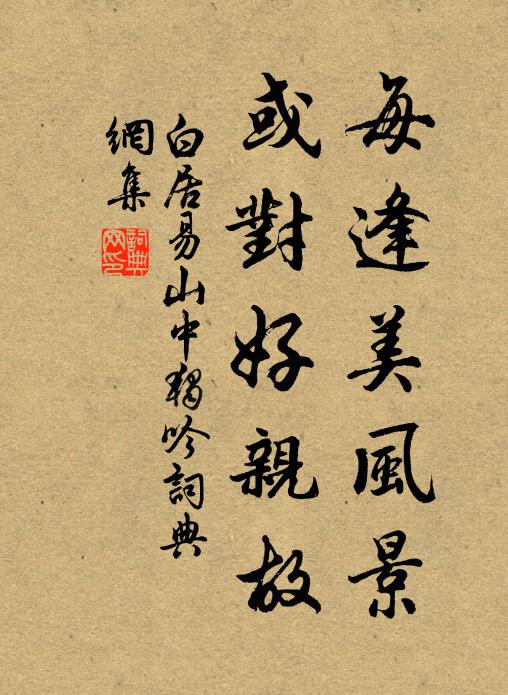 每逢美風景
或對好親故
白居易山中獨吟詞典
網集
詞典
网印